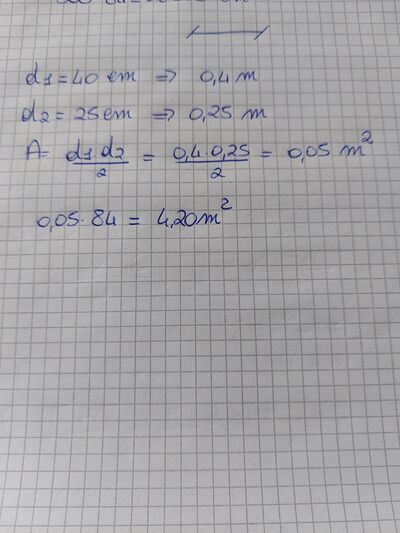 d1 = 40 cm => 0,4 m
d2 = 25 cm => 0,25 m
A = d1 · d2 / 2 = 0,4 · 0,25 / 2 = 0,05 m²
0,05 · 84 = 4,20 m²